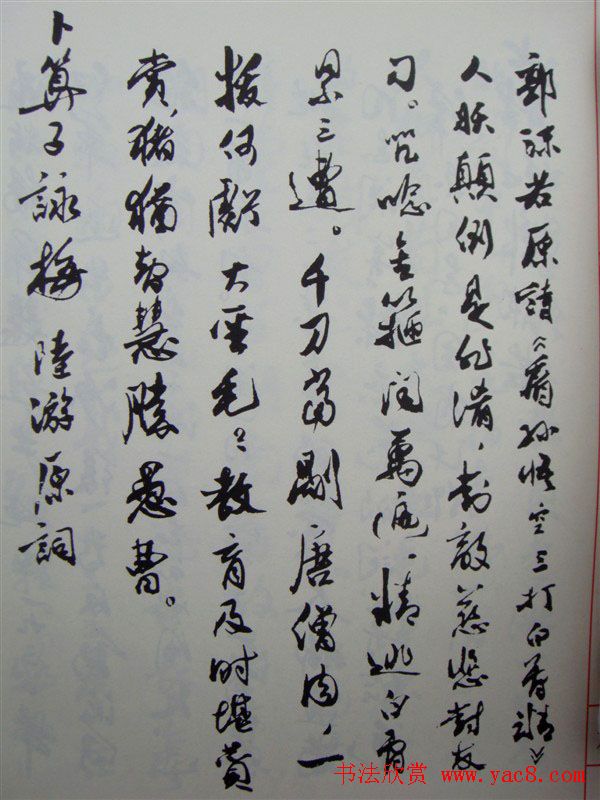 郭沫若原诗《看孙悟空三打白骨精》
人妖颠倒是非淆，对敌慈悲对友
刁。咒念金箍闻万遍，精逃白骨
累三遭。千刀当剐唐僧肉，一
拔何亏大圣毛。教育及时堪赞
赏，猪犹智慧胜愚曹。
卜算子 詠梅 陸游原詞
书法欣赏 www.yac8.com